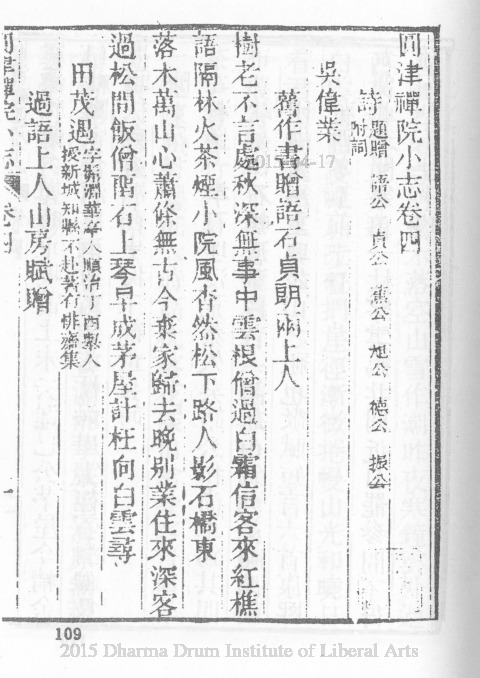 圓津禪院小志卷四
詩 題贈 附詞 語公 貞公 蕉公 旭公 德公 振公
吳偉業
舊作書贈語石貞朗兩上人
樹老不言處秋深無事中雲根僧過白霜信客來紅樵
語隔林火茶煙小院風杳然松下路人影石橋東
落木萬山心蕭條無古今棄家歸去晚別業住來深客
過松間飯僧留石上琴早成茅屋計枉向白雲尋
田茂遇 字淵華亭人順治丁酉舉人
授新城知縣不赴著有悱齋集
過語上人山房賦贈
圓津禪院小志 卷四 一
109
2015 Dharma Drum Institute of Liberal Arts